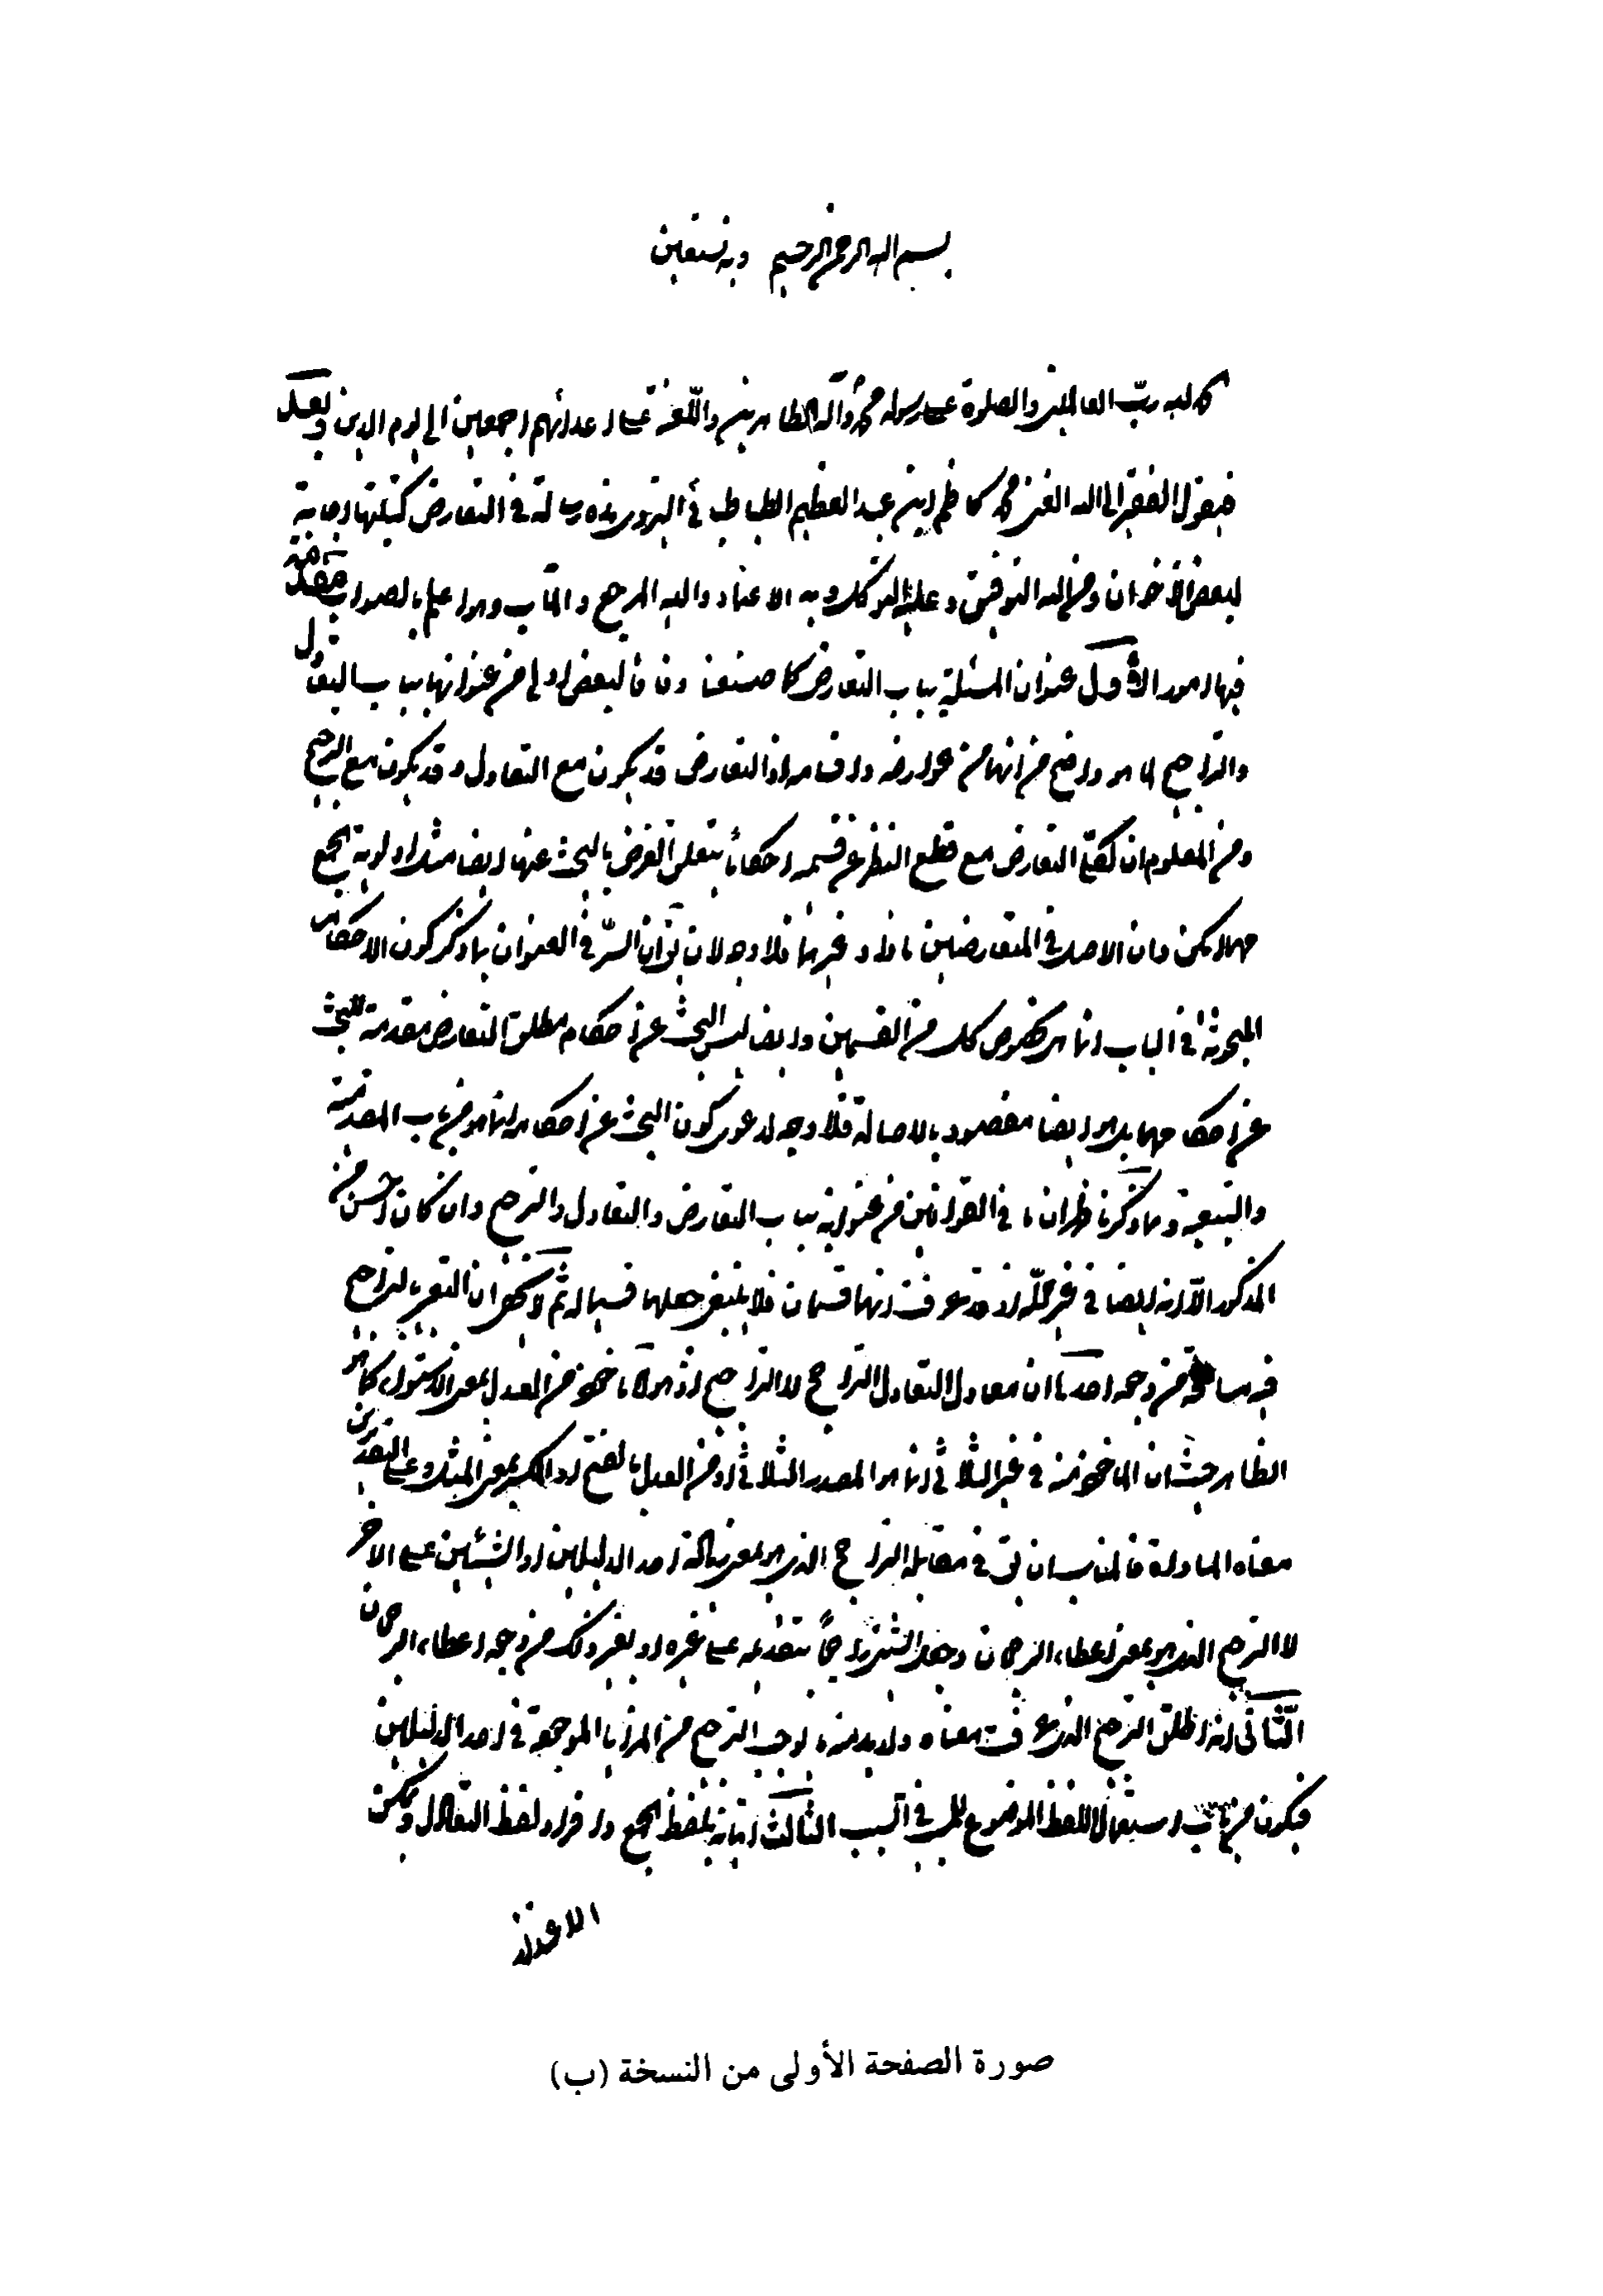 بسم الله الرحمن الرحيم وبه نستعين
الحمد لله ربّ العالمين والصلوة على رسوله محمد وآله الطاهرين واللّعنة على اعدائهم اجمعين الى يوم الدين وبعد
فيقول الفقير الى الله الغني محمد كاظم ابن عبد العظيم الطباطبائي اليزدي هذه رسالة في التعارض كتبتها اجابة
لبعض الاخوان ومن الله التوفيق وعليه التوكل وبه الاعتماد واليه المرجع والمآب وهو اعلم بالصواب مقدمة
فيها امور الأول عنوان المسئلة بباب التعارض كما صنعنا وفاقا لبعض اولى من عنوانها بباب التعادل
والتراجيح لما هو واضح من انهما من عوارضه واقسامه اذ التعارض قد يكون مع التعادل وقد يكون مع الترجيح
ومن المعلوم ان لكلي التعارض مع قطع النظر عن قسميه احكاماً يتعلق الغرض بالبحث عنها ايضا مثل اولوية الجمع
مهما امكن وان الاصل في المتعارضين ماذا وغيرهما فلا وجه لان يق ان السرّ في العنوان بما ذكر كون الاحكام
المبحوثة في الباب انما هي لخصوص كل من القسمين وايضا ليس البحث عن احكام مطلق التعارض مقدمة للبحث
عن احكامهما بل هو ايضا مقصود بالاصالة فلا وجه لدعوى كون البحث عن احكامه انما هو من باب المقدمة
والتبعية ومما ذكرنا ظهر ان ما في القوانين من عنوانه بباب التعارض والتعادل والترجيح وان كان احسن من
المذكور الّا انه ايضا في غير محلّه اذ قد عرفت انهما قسمان فلا ينبغي جعلهما قسيما له ثم لا يخفى ان التعبير بالتراجيح
فيه مسامحة من وجوه احدها ان معادل التعادل التراجح لا التراجيح اذ هو اما مأخوذ من العدل بمعنى الاستواء كما هو
الظاهر حيث ان المأخوذ منه في غير الثلاثي انما هو المصدر الثلاثي او من العدل بالفتح او الكسر بمعنى المثل وعلى التقديرين
معناه المساواة فالمناسب ان يق في مقابله التراجح الذي هو بمعنى زيادة احد الدليلين او الشيئين على الآخر
لا الترجيح الذي هو بمعنى اعطاء الرجحان وجعل الشيء راجحاً بتقديمه على غيره او بغير ذلك من وجوه اعطاء الرجحان
الثّاني انه اطلق الترجيح الذي عرفت معناه واريد منه ما يوجب الترجيح من المزايا الموجودة في احد الدليلين
فيكون من باب استعمال اللفظ الموضوع للمسبب في السبب الثالث اتيانه بلفظ الجمع وافراد لفظ التعادل ويمكن
الاعتذار
صورة الصفحة الأولى من النسخة (ب)